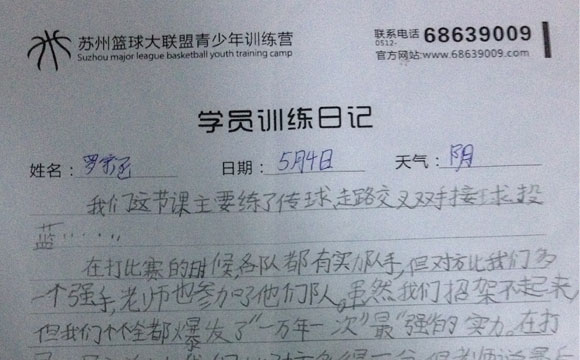 苏州篮球大联盟青少年训练营
Suzhou major league basketball youth training camp
联系电话 0512- 68639009
官方网站:www.68639009.com
学员训练日记
姓名: 罗 日期: 5月4日 天气: 阴
我们这节课主要练了传球,走路交叉双手接球,投
蓝……,,
在打比赛的时候,各队都有实力队手,但对方比我们多
一个强手,老师也参加了他们队,虽然我们招架不起来,
但我们个个全都爆发了“一万年一次”最“强”的实力。在打